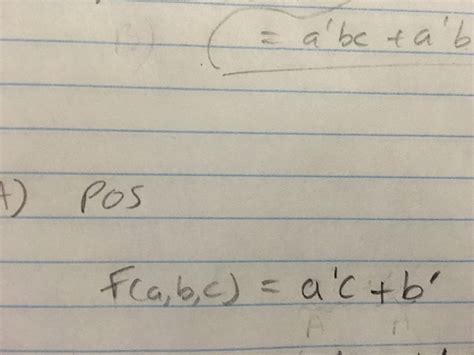 = a'bc + a'b
A) POS
F(a,b,c) = a'c + b'